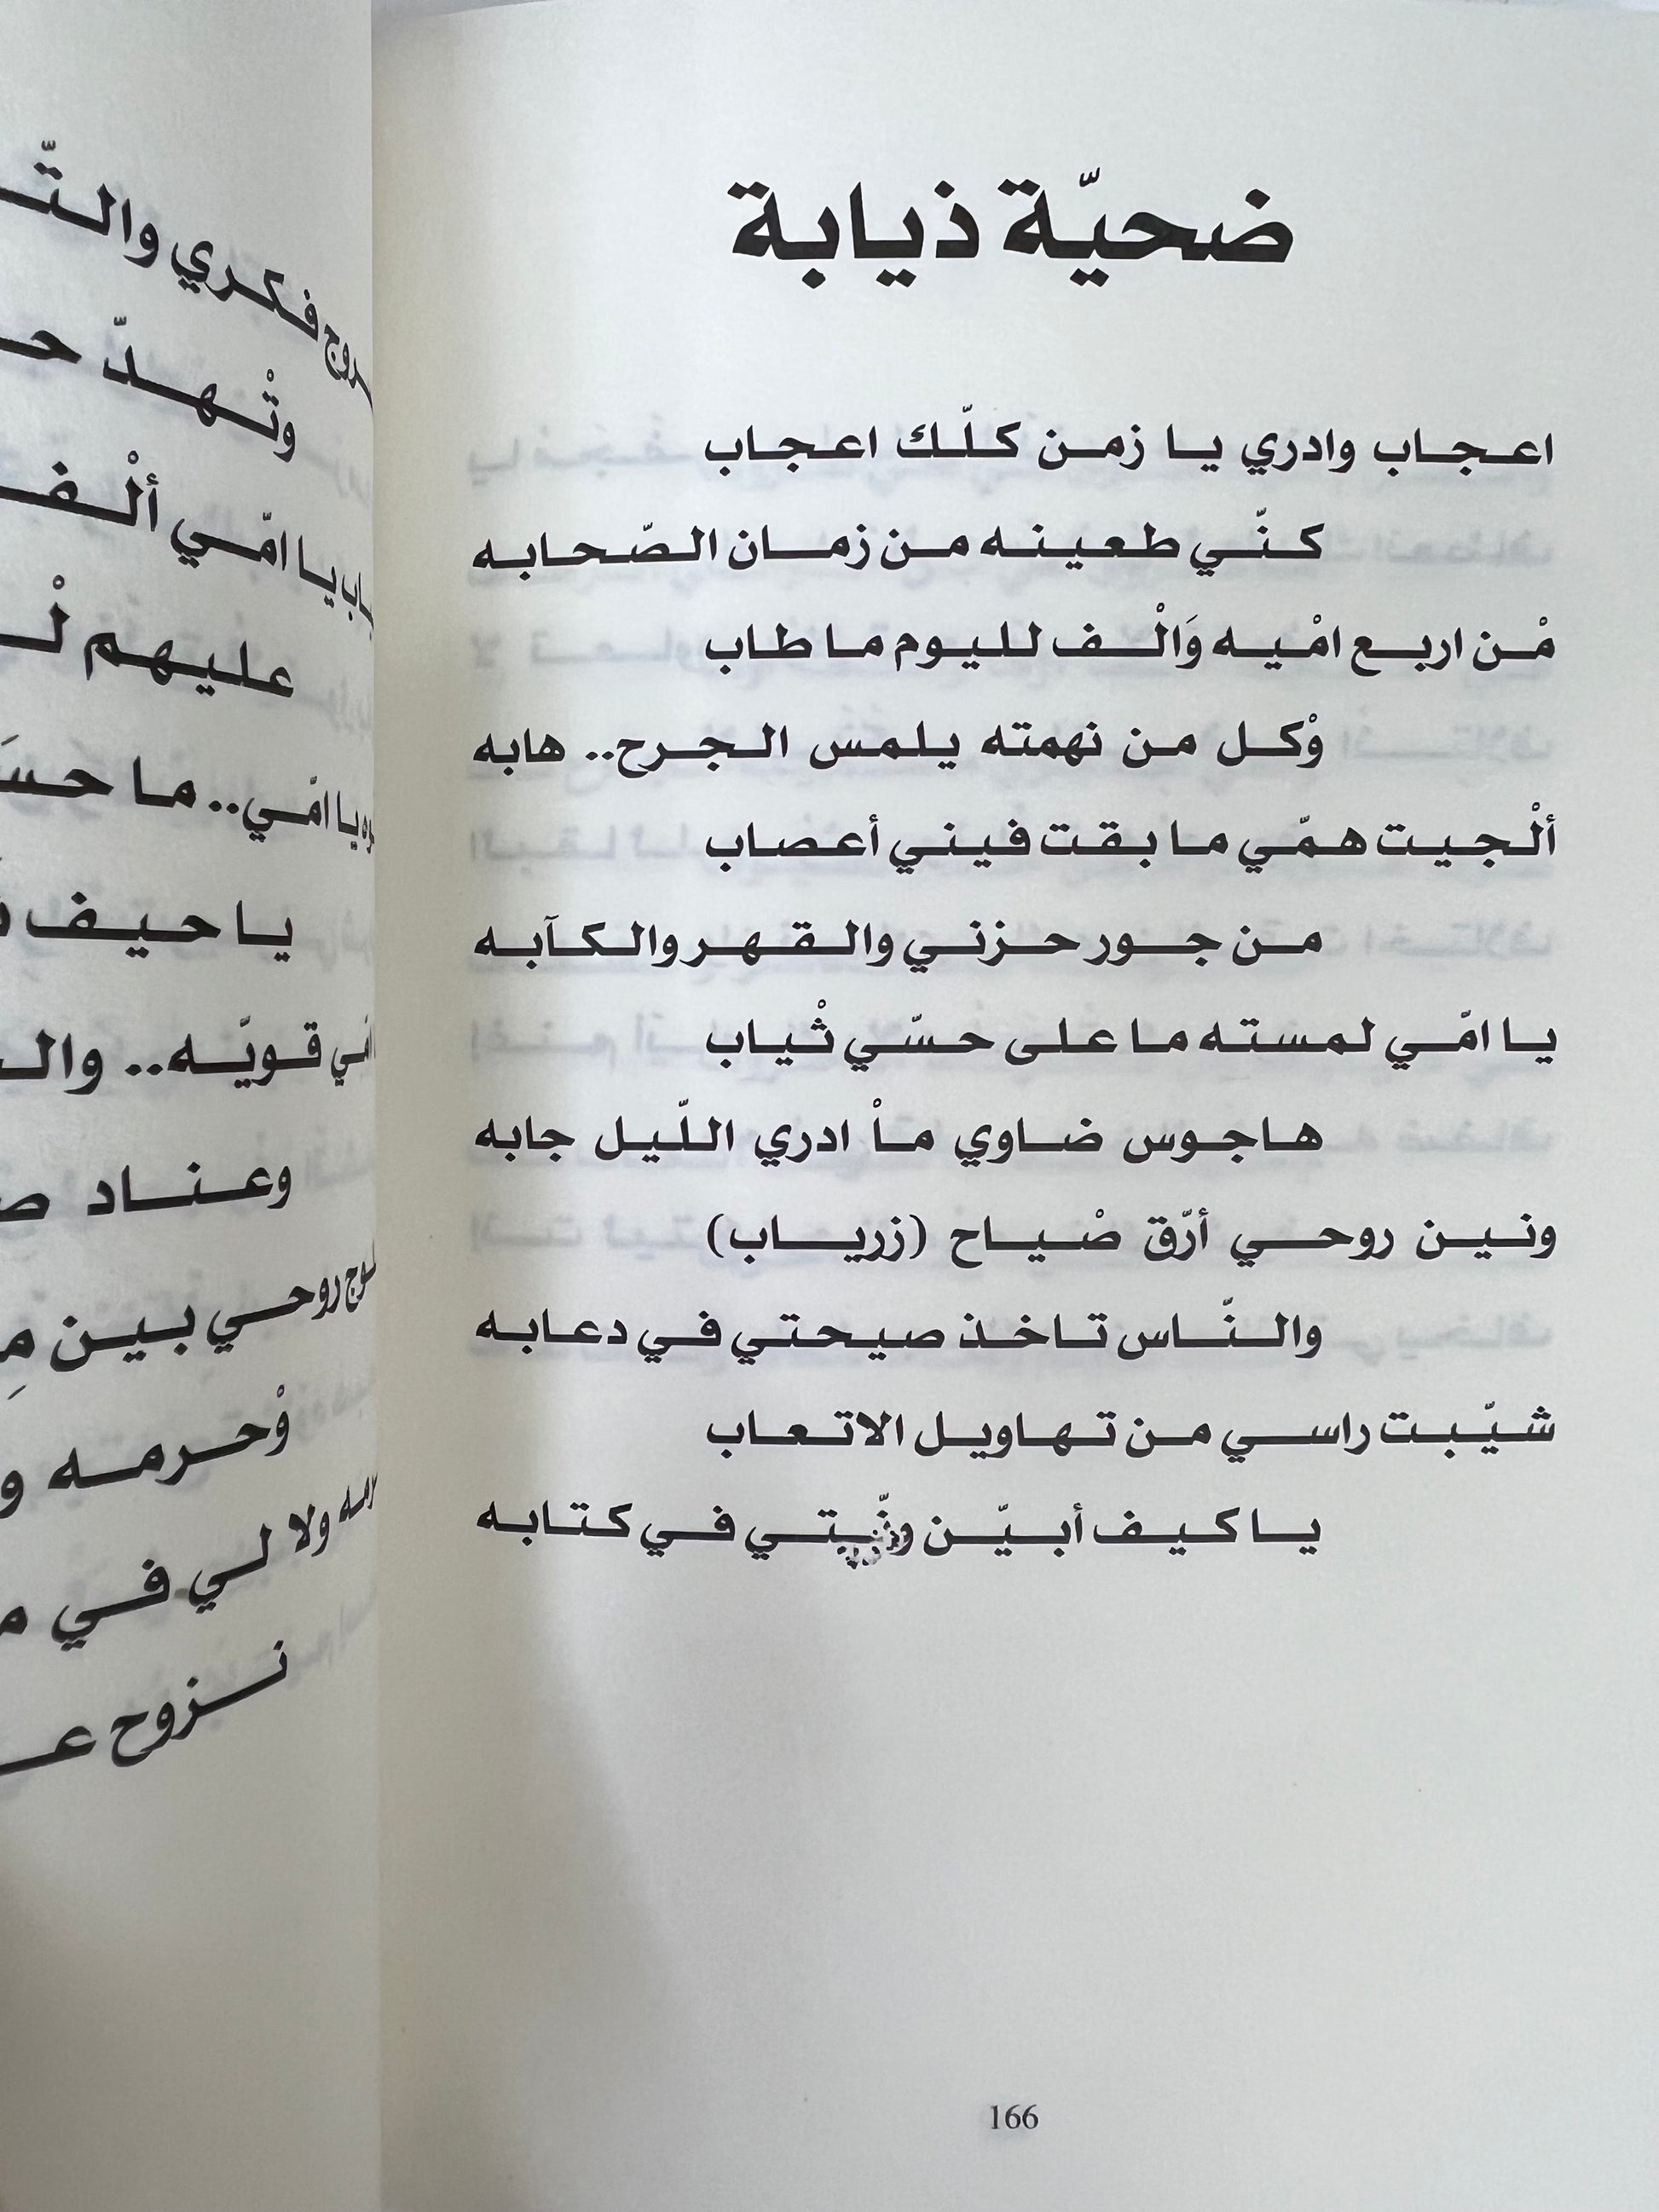 ضحيّة ذيابة
اعجاب وادري يا زمن كلّك اعجاب
كنّي طعينه من زمان الصّحابه
مْن اربع امْيه وَالْف لليوم ما طاب
وْكل من نهمته يلمس الجرح.. هابه
ألْجيت همّي ما بقت فيني أعصاب
من جور حزني والقهر والكآبه
يا امّي لمسته ما على حسّي ثْياب
هاجوس ضاوي ماْ ادري اللّيل جابه
ونين روحي أرّق صْياح (زرياب)
والنّاس تاخذ صيحتي في دعابه
شيّبت راسي من تهاويل الاتعاب
يا كيف أبيّن في كتابه
166
فكري
وتْهدّ
يا امّي
عليهم
يا امّي.. ما
يا حيف
قويّه..
وعناد
روحي بين
وْحرمه
ولا لي في
نزوح